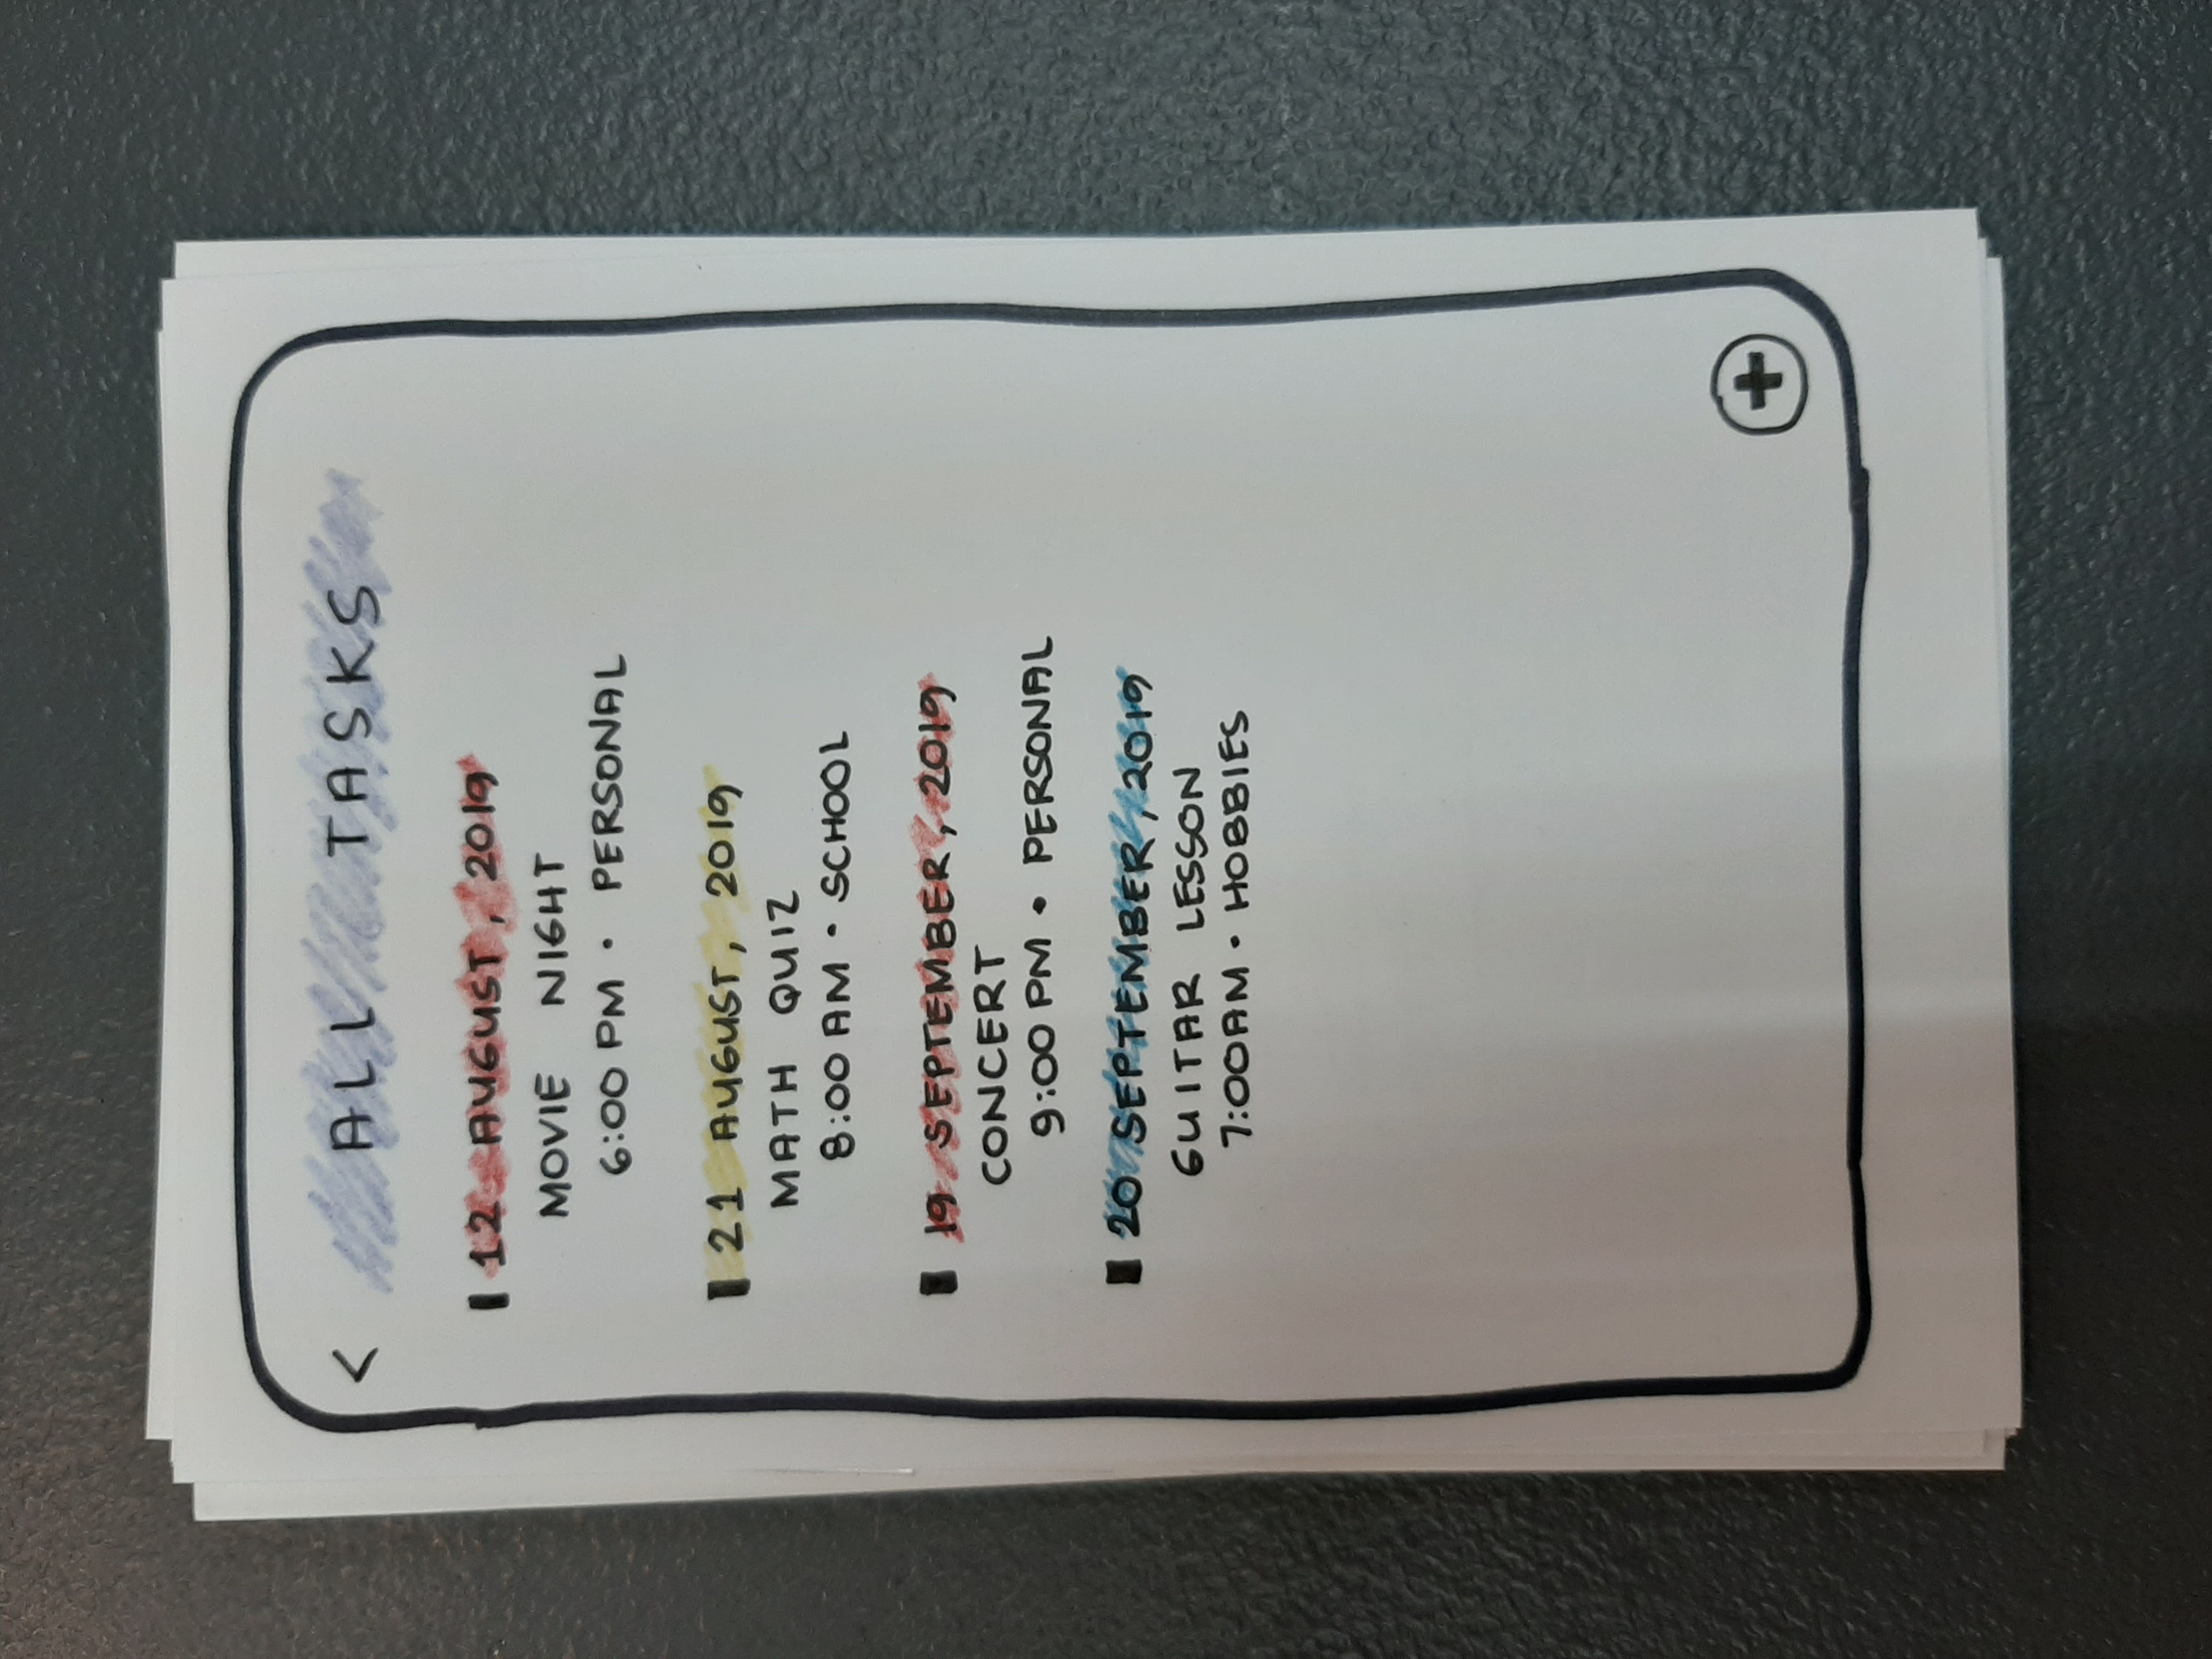 < ALL TASKS
12 AUGUST, 2019
MOVIE NIGHT
6:00 PM • PERSONAL
21 AUGUST, 2019
MATH QUIZ
8:00 AM • SCHOOL
19 SEPTEMBER, 2019
CONCERT
9:00 PM • PERSONAL
20 SEPTEMBER, 2019
GUITAR LESSON
7:00AM • HOBBIES
+